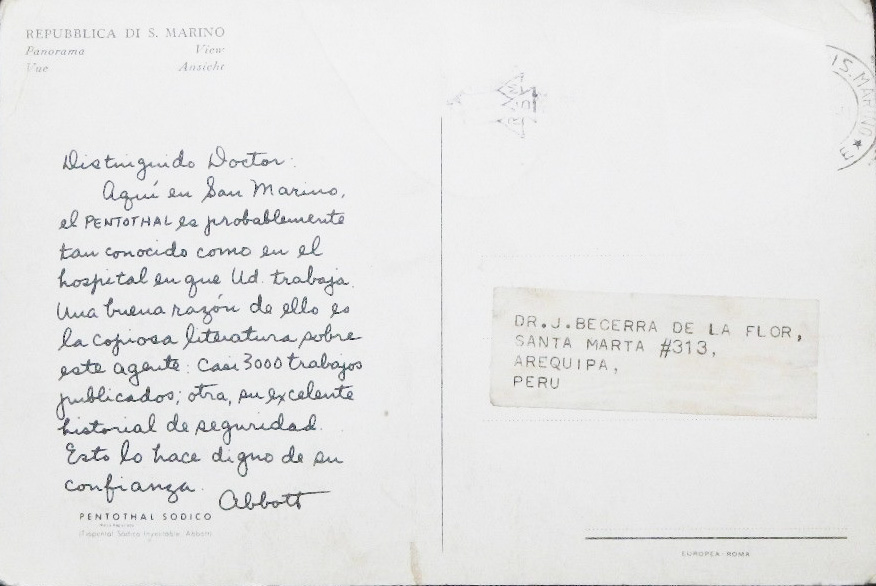 REPUBBLICA DI S. MARINO
Panorama View
Vue Ansicht
Distinguido Doctor:
Aquí en San Marino,
el PENTOTHAL es probablemente
tan conocido como en el
hospital en que Ud. trabaja.
Una buena razón de ello es
la copiosa literatura sobre
este agente: Casi 3000 trabajos
publicados; otra, su excelente
historial de seguridad.
Esto lo hace digno de su
confianza.
Abbott
PENTOTHAL SODICO
(Tiopental Sódico Inyectable, Abbott)
S. MARINO
DR. J. BECERRA DE LA FLOR,
SANTA MARTA #313,
AREQUIPA,
PERU
EUROPEA - ROMA